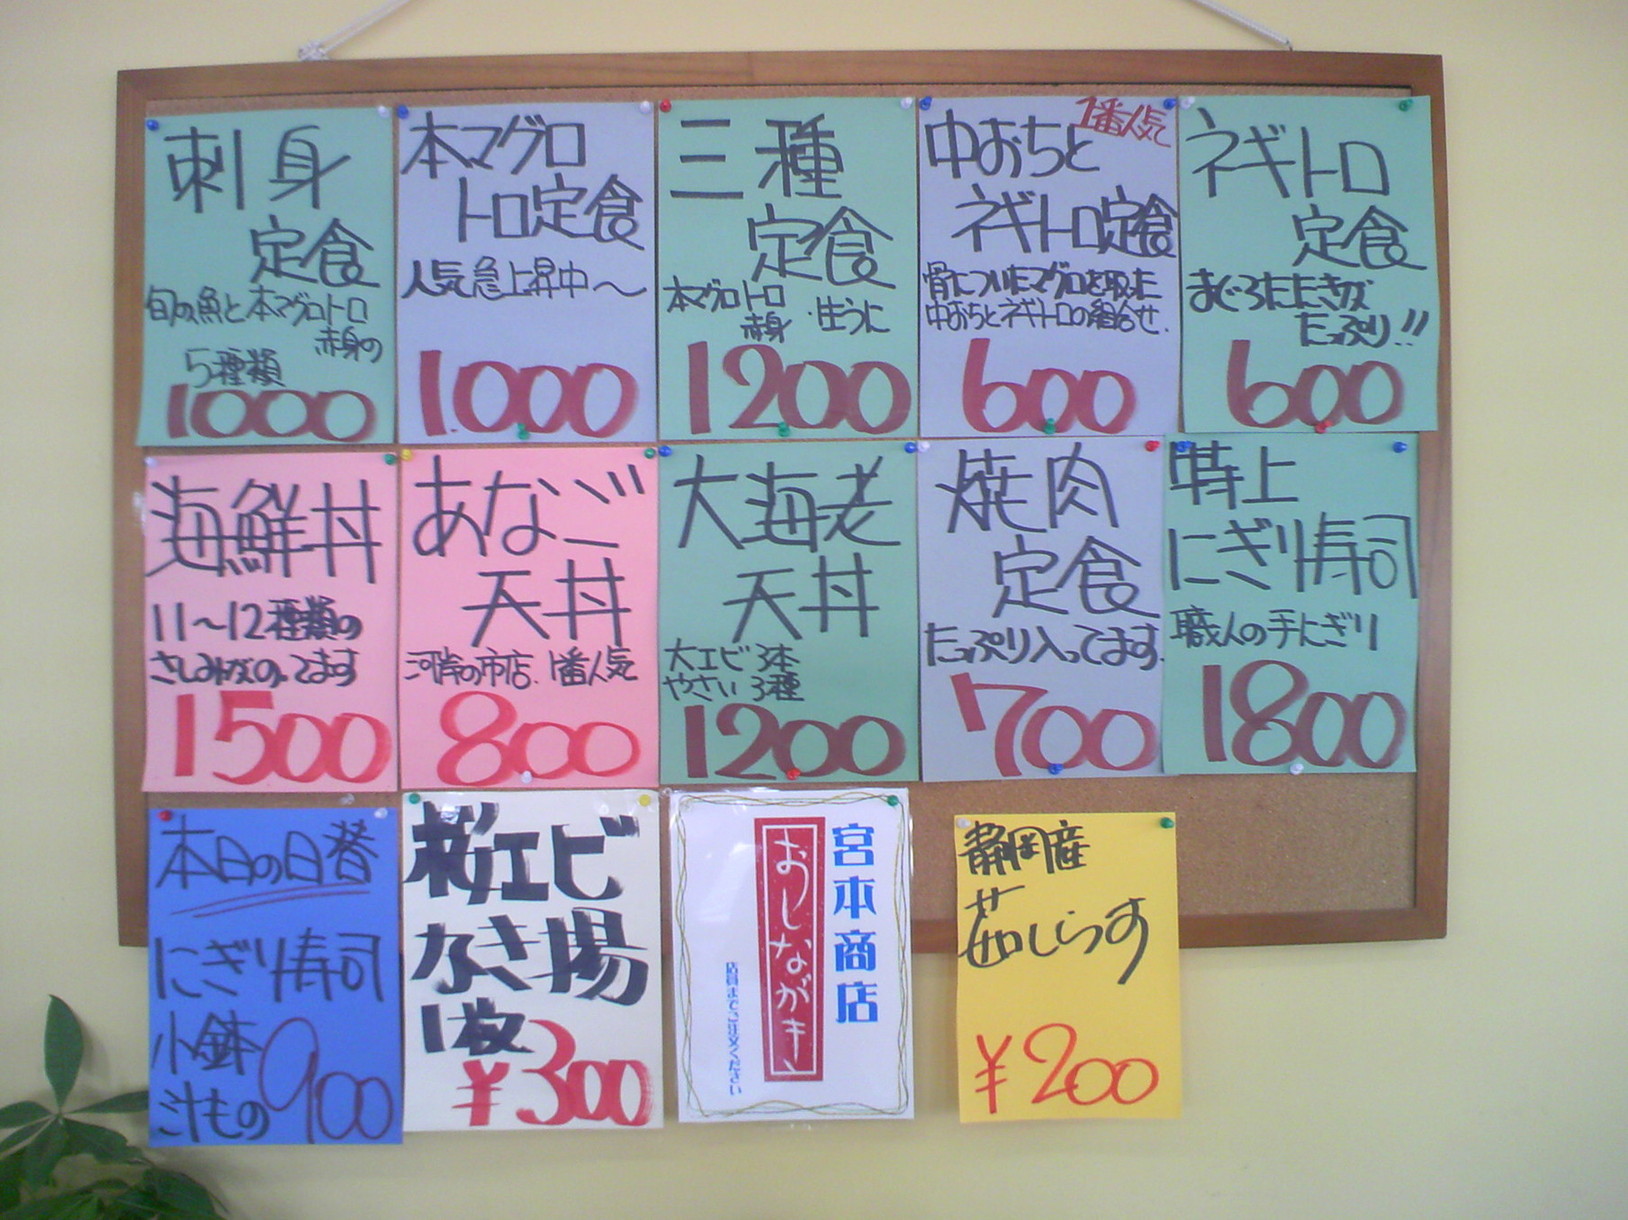 刺身
定食
旬の魚と本マグロトロ
赤身の
5種類
1000
本マグロ
トロ定食
人気急上昇中〜
1000
三種
定食
本マグロトロ
赤身・生うに
1200
1番人気
中おちと
ネギトロ定食
骨についたマグロを取った
中おちとネギトロの組合せ.
600
ネギトロ
定食
まぐろたたきが
たっぷり!!
600
海鮮丼
11〜12種類の
さしみがのってます
1500
あなご
天丼
河岸の市店.1番人気
800
大海老
天丼
大エビ3本
やさい3種
1200
焼肉
定食
たっぷり入ってます.
700
特上
にぎり寿司
職人の手にぎり
1800
本日の日替
にぎり寿司
小鉢
汁もの
900
桜エビ
かき揚
1枚
¥300
宮本商店
おしながき
店員までご注文ください
静岡産
茹しらす
¥200